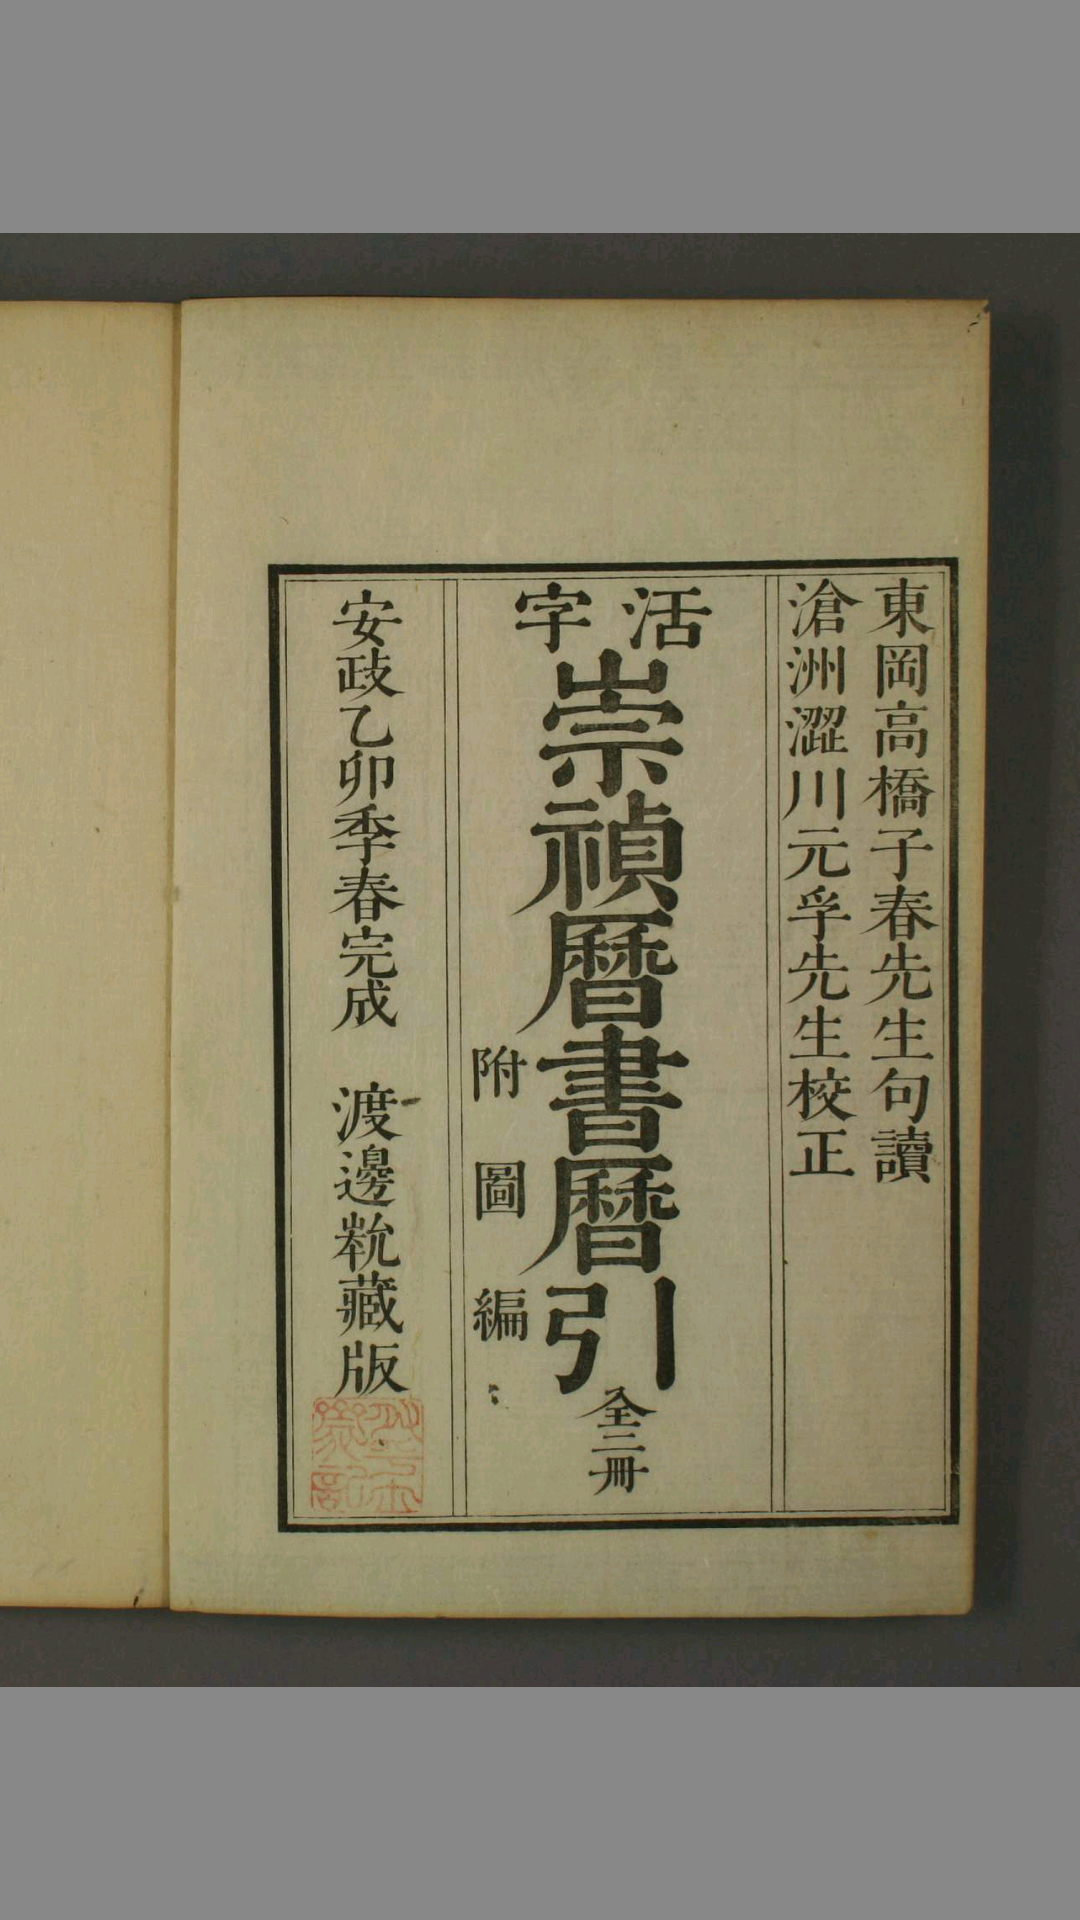 東岡高橋子春先生句讀
滄洲澀川元孚先生校正
活字
崇禎曆書曆引
全三冊
附圖編
安政乙卯季春完成　渡邊㪇藏版